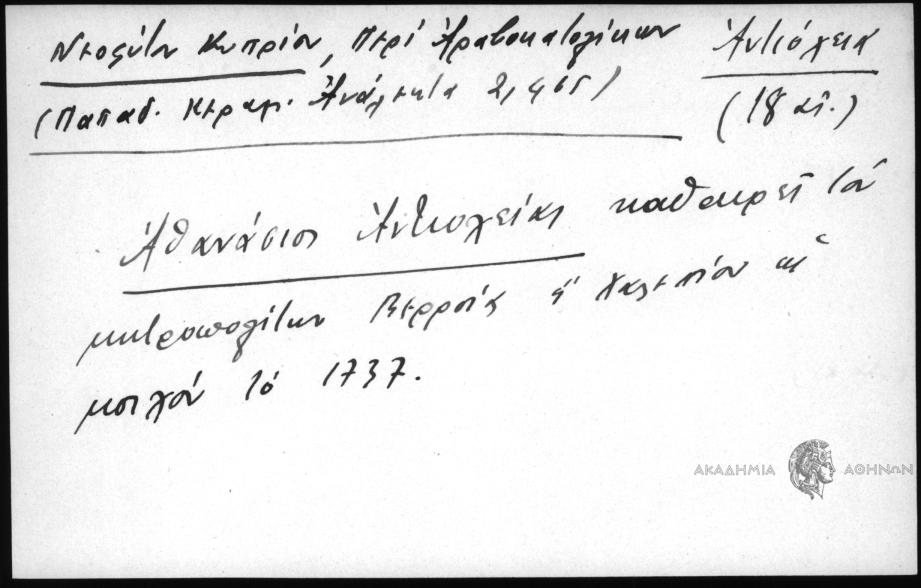 Νεοφύτου Κυπρίου, Περί Ἀραβοκατολίκων
(Παπαδ. Κεραμ. Ἀνάλεκτα 2, 405)
Ἀντιόχεια
(18 αἰ.)
Ἀθανάσιος Ἀντιοχείας καθαιρεῖ τόν
μητροπολίτην Βερροίας ἤ Χαλεπίου ὡς
μοιχόν τό 1737.
ΑΚΑΔΗΜΙΑ ΑΘΗΝΩΝ